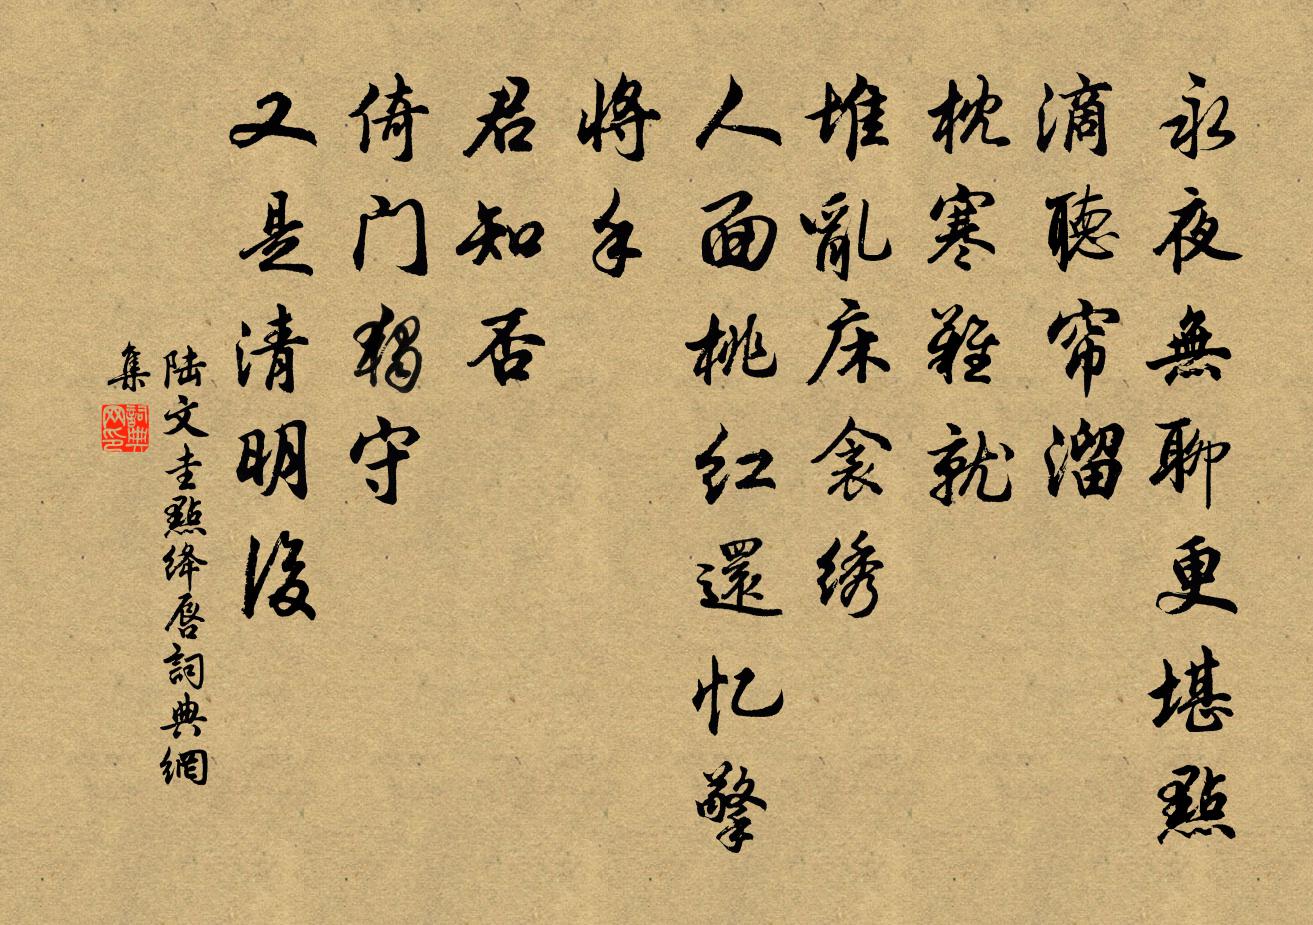 永夜無聊更堪點
滴聽帘溜
枕寒難就
堆亂床衾绣
人面桃红還忆擎
將手
君知否
倚门獨守
又是清明後
陆文圭點绛唇詞典網
集
詞典网印